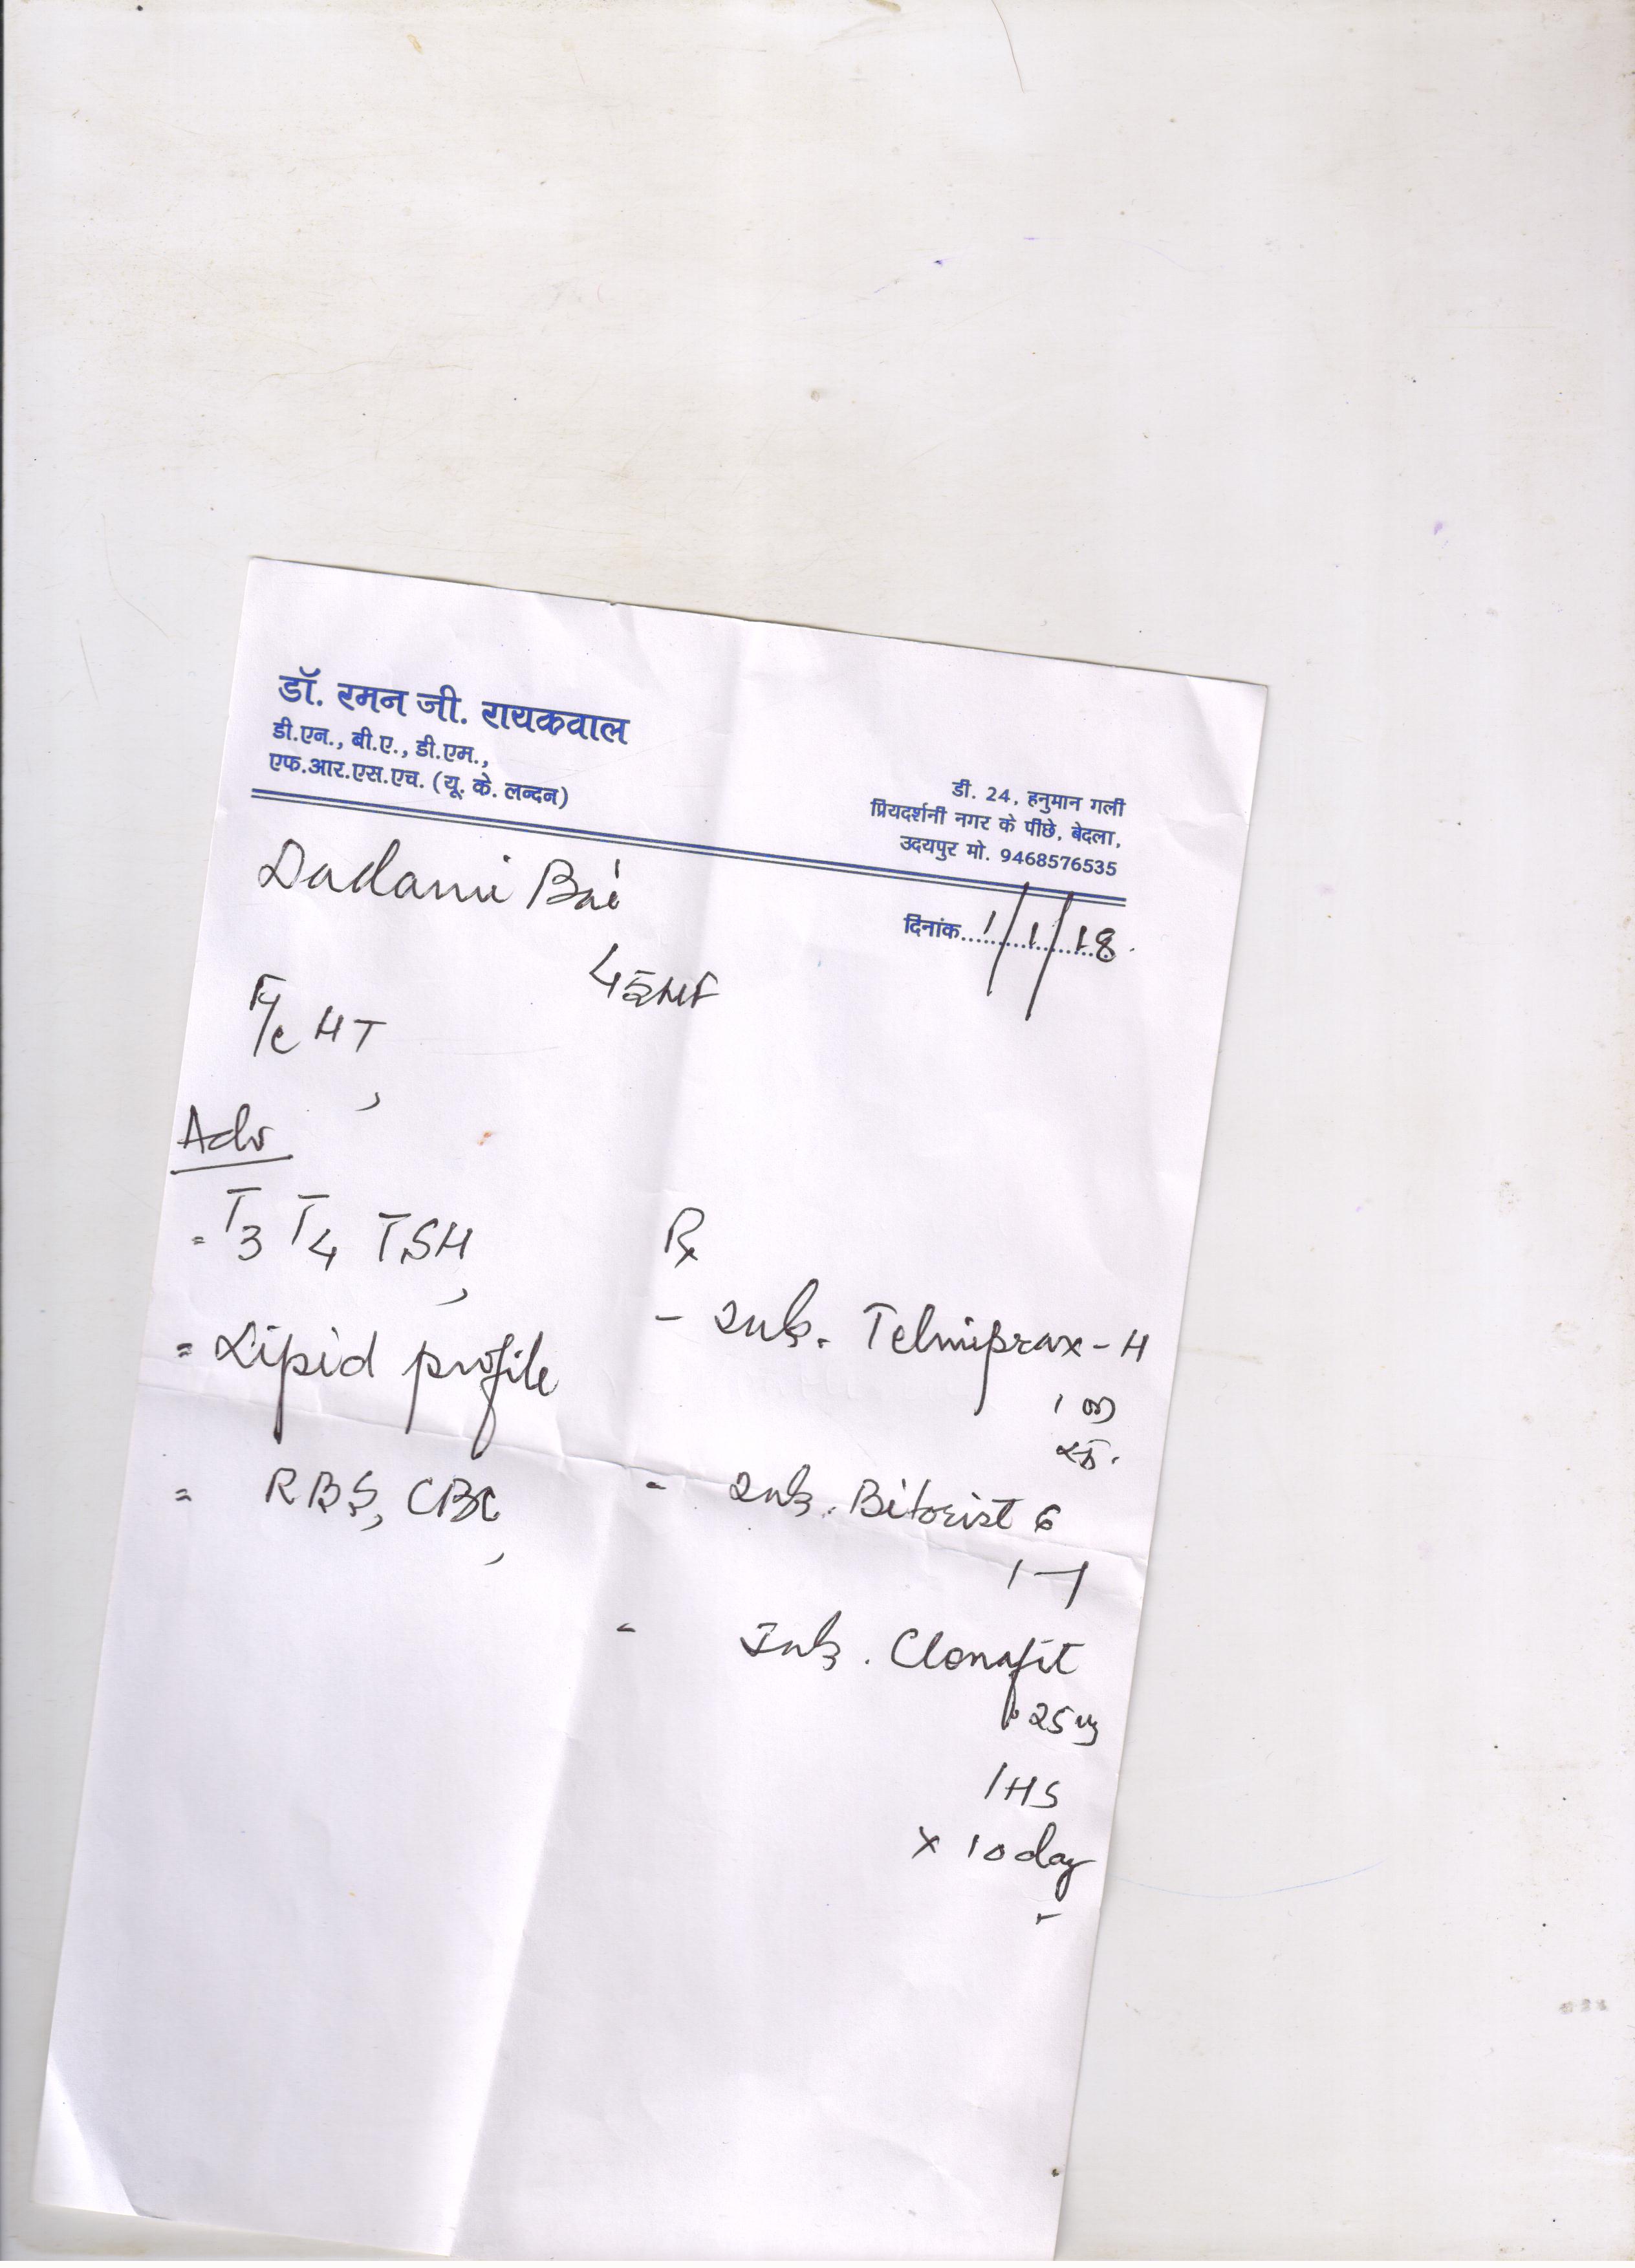 डॉ. रमन जी. रायकवाल
डी.एन., बी.ए., डी.एम.,
एफ.आर.एस.एच. (यू. के. लन्दन)
डी. 24, हनुमान गली
प्रियदर्शनी नगर के पीछे, बेदला,
उदयपुर मो. 9468576535
दिनांक 1/1/18
Dadami Bai
HT,
Adv
= T3 T4 TSH,
= Lipid profile
= RBS, CBC,
Rx
- Tab. Telmiprax-H
1 OD
- Tab. Bitorist 6
1-1
- Tab. Clonafit
.25mg
1HS
x 10 day